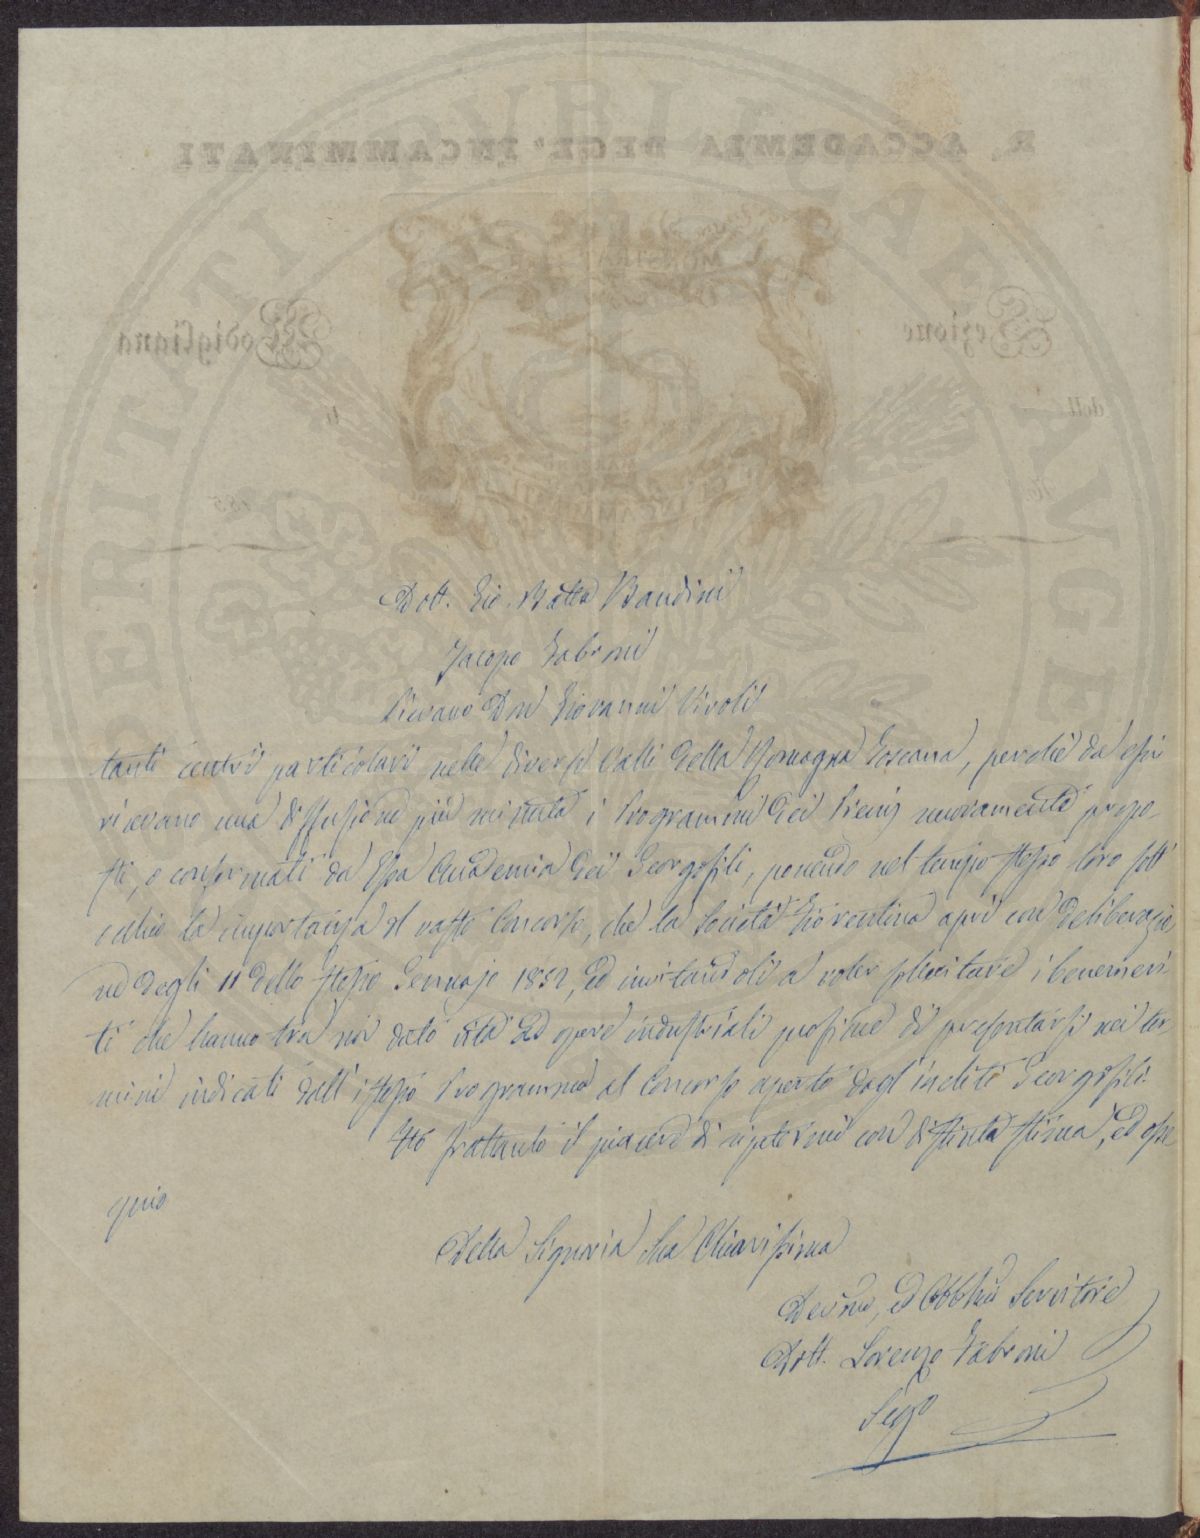 Dott. Gio. Batta Bandini
Jacopo Fabroni
Pievano Don Giovanni Vivoli
tanti centri particolari nelle diverse Valli della Romagna Toscana, perchè da essi
ricevano una diffusione più minuta i Programmi dei Premj nuovamente propo-
sti, o confermati da Essa Accademia dei Georgofili, ponendo nel tempo stesso loro sott'
occhio la importanza del vasto Concorso, che la Società Fiorentina aprì con deliberazio
ne degli 11 dello stesso Gennajo 1852, ed invitandoli a voler sollecitare i benemeri-
ti che hanno tra noi dato vita ad opere industriali proficue di presentarsi nei ter
mini indicati dall'istesso Programma al Concorso aperto dagl'incliti Georgofili.
Ho frattanto il piacere di ripetermi con distinta stima, ed osse
quio
Della Signoria Sua Chiarissima
Devmo, ed Obblmo Servitore
Dott. Lorenzo Fabroni
Segro
R. ACCADEMIA DEGL' INCAMMINATI
Sezione
Modigliana
dell
li
No
185
PUBLICAE